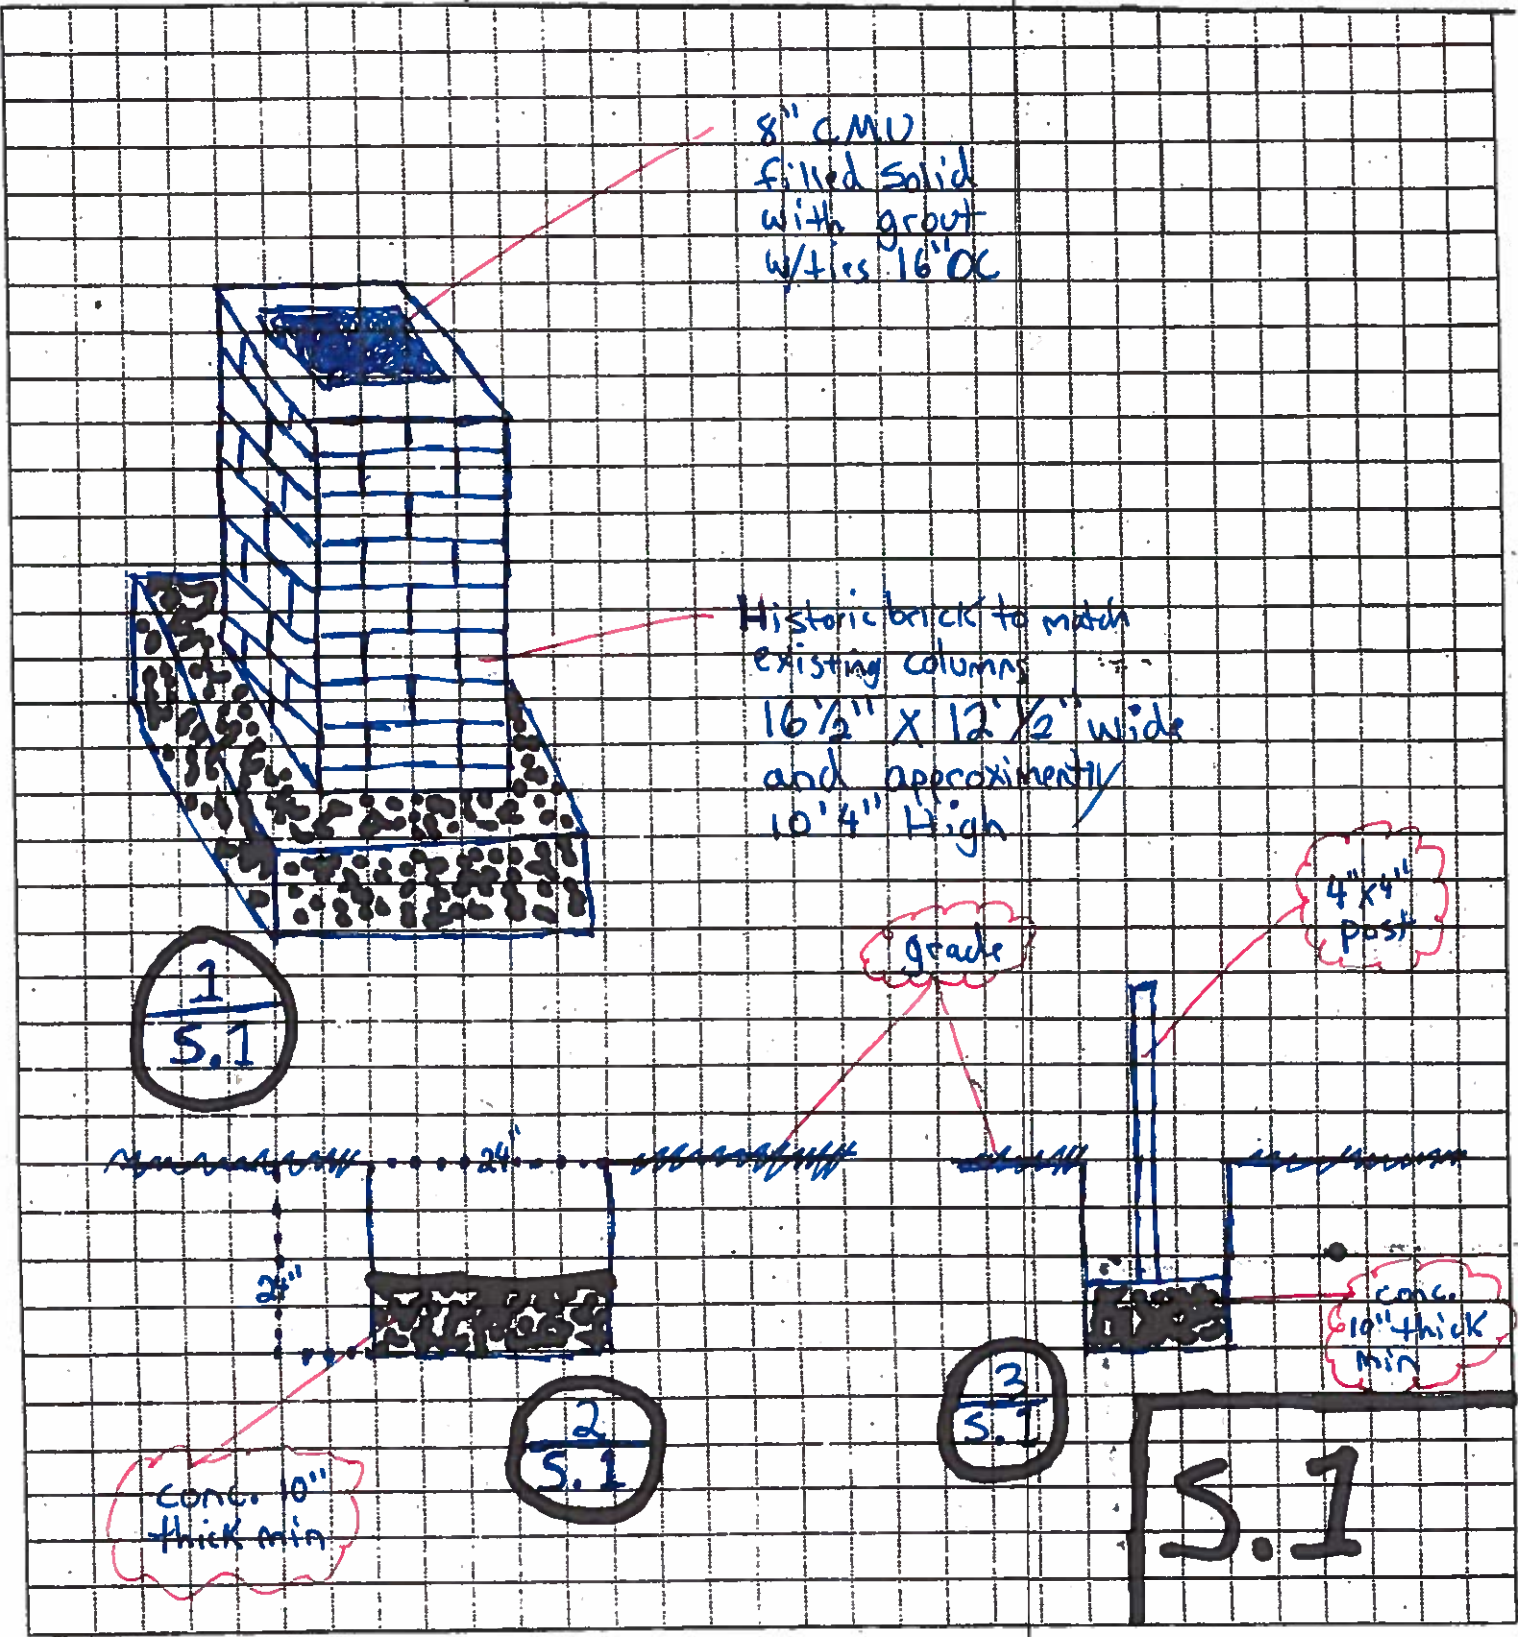 8" CMU
filled solid
with grout
w/ties 16"OC
Historic brick to match
existing columns
16 1/2" X 12 1/2" wide
and approximently
10'4" High
4"x4"
post
grade
1
S.1
24"
24"
conc.
10" thick
min
2
S.1
3
S.1
conc. 10"
thick min
S.1